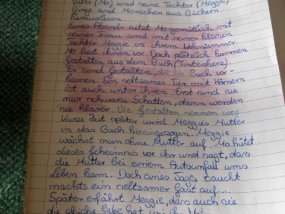 Vater (Mo) und seine Tochter (Maggie)
Dinge und Menschen aus Büchern
herauslesen.
Eines Abends sitzt Mo gemütlich mit
seiner Frau und mit seiner kleinen
Tochter Maggie in ihrem Wohnzimmer.
Mo liest ihnen vor. Doch plötzlich kommen
Gestalten aus dem Buch (Tintenherz).
Es sind Gestalten, die im Buch vor-
kamen. Ein seltsames Tier mit Hörnern
ist auch unter ihnen. Erst sind es
nur schwarze Schatten, dann werden
sie klarer. Die Gestalten nennen
Kurze Zeit später wird Meggis Mutter
in das Buch hineingezogen. Meggie
wächst nun ohne Mutter auf. Mo hütet
dieses Geheimnis vor ihr und sagt, dass
die Mutter bei einem Autounfall ums
Leben kam. Doch eines Tages taucht
nachts ein seltsamer Gast auf...
Später erfährt Meggie, dass auch sie